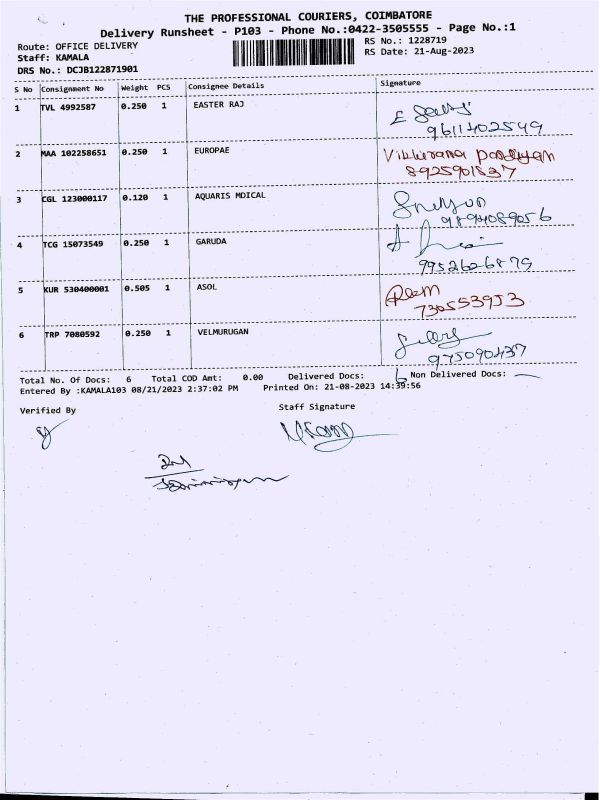 THE PROFESSIONAL COURIERS, COIMBATORE
Delivery Runsheet - P103 - Phone No.:0422-3505555 - Page No.:1
Route: OFFICE DELIVERY RS No.: 1228719
Staff: KAMALA RS Date: 21-Aug-2023
DRS No.: DCJB122871901
S No Consignment No Weight PCS Consignee Details Signature
1 TVL 4992587 0.250 1 EASTER RAJ
9611402549
2 MAA 102258651 0.250 1 EUROPAE
8925901837
3 CGL 123000117 0.120 1 AQUARIS MDICAL
9894089056
4 TCG 15073549 0.250 1 GARUDA
9952626879
5 KUR 530400001 0.505 1 ASOL
730553953
6 TRP 7080592 0.250 1 VELMURUGAN
975090437
Total No. Of Docs: 6 Total COD Amt: 0.00 Delivered Docs: 6 Non Delivered Docs: —
Entered By :KAMALA103 08/21/2023 2:37:02 PM Printed On: 21-08-2023 14:39:56
Verified By Staff Signature